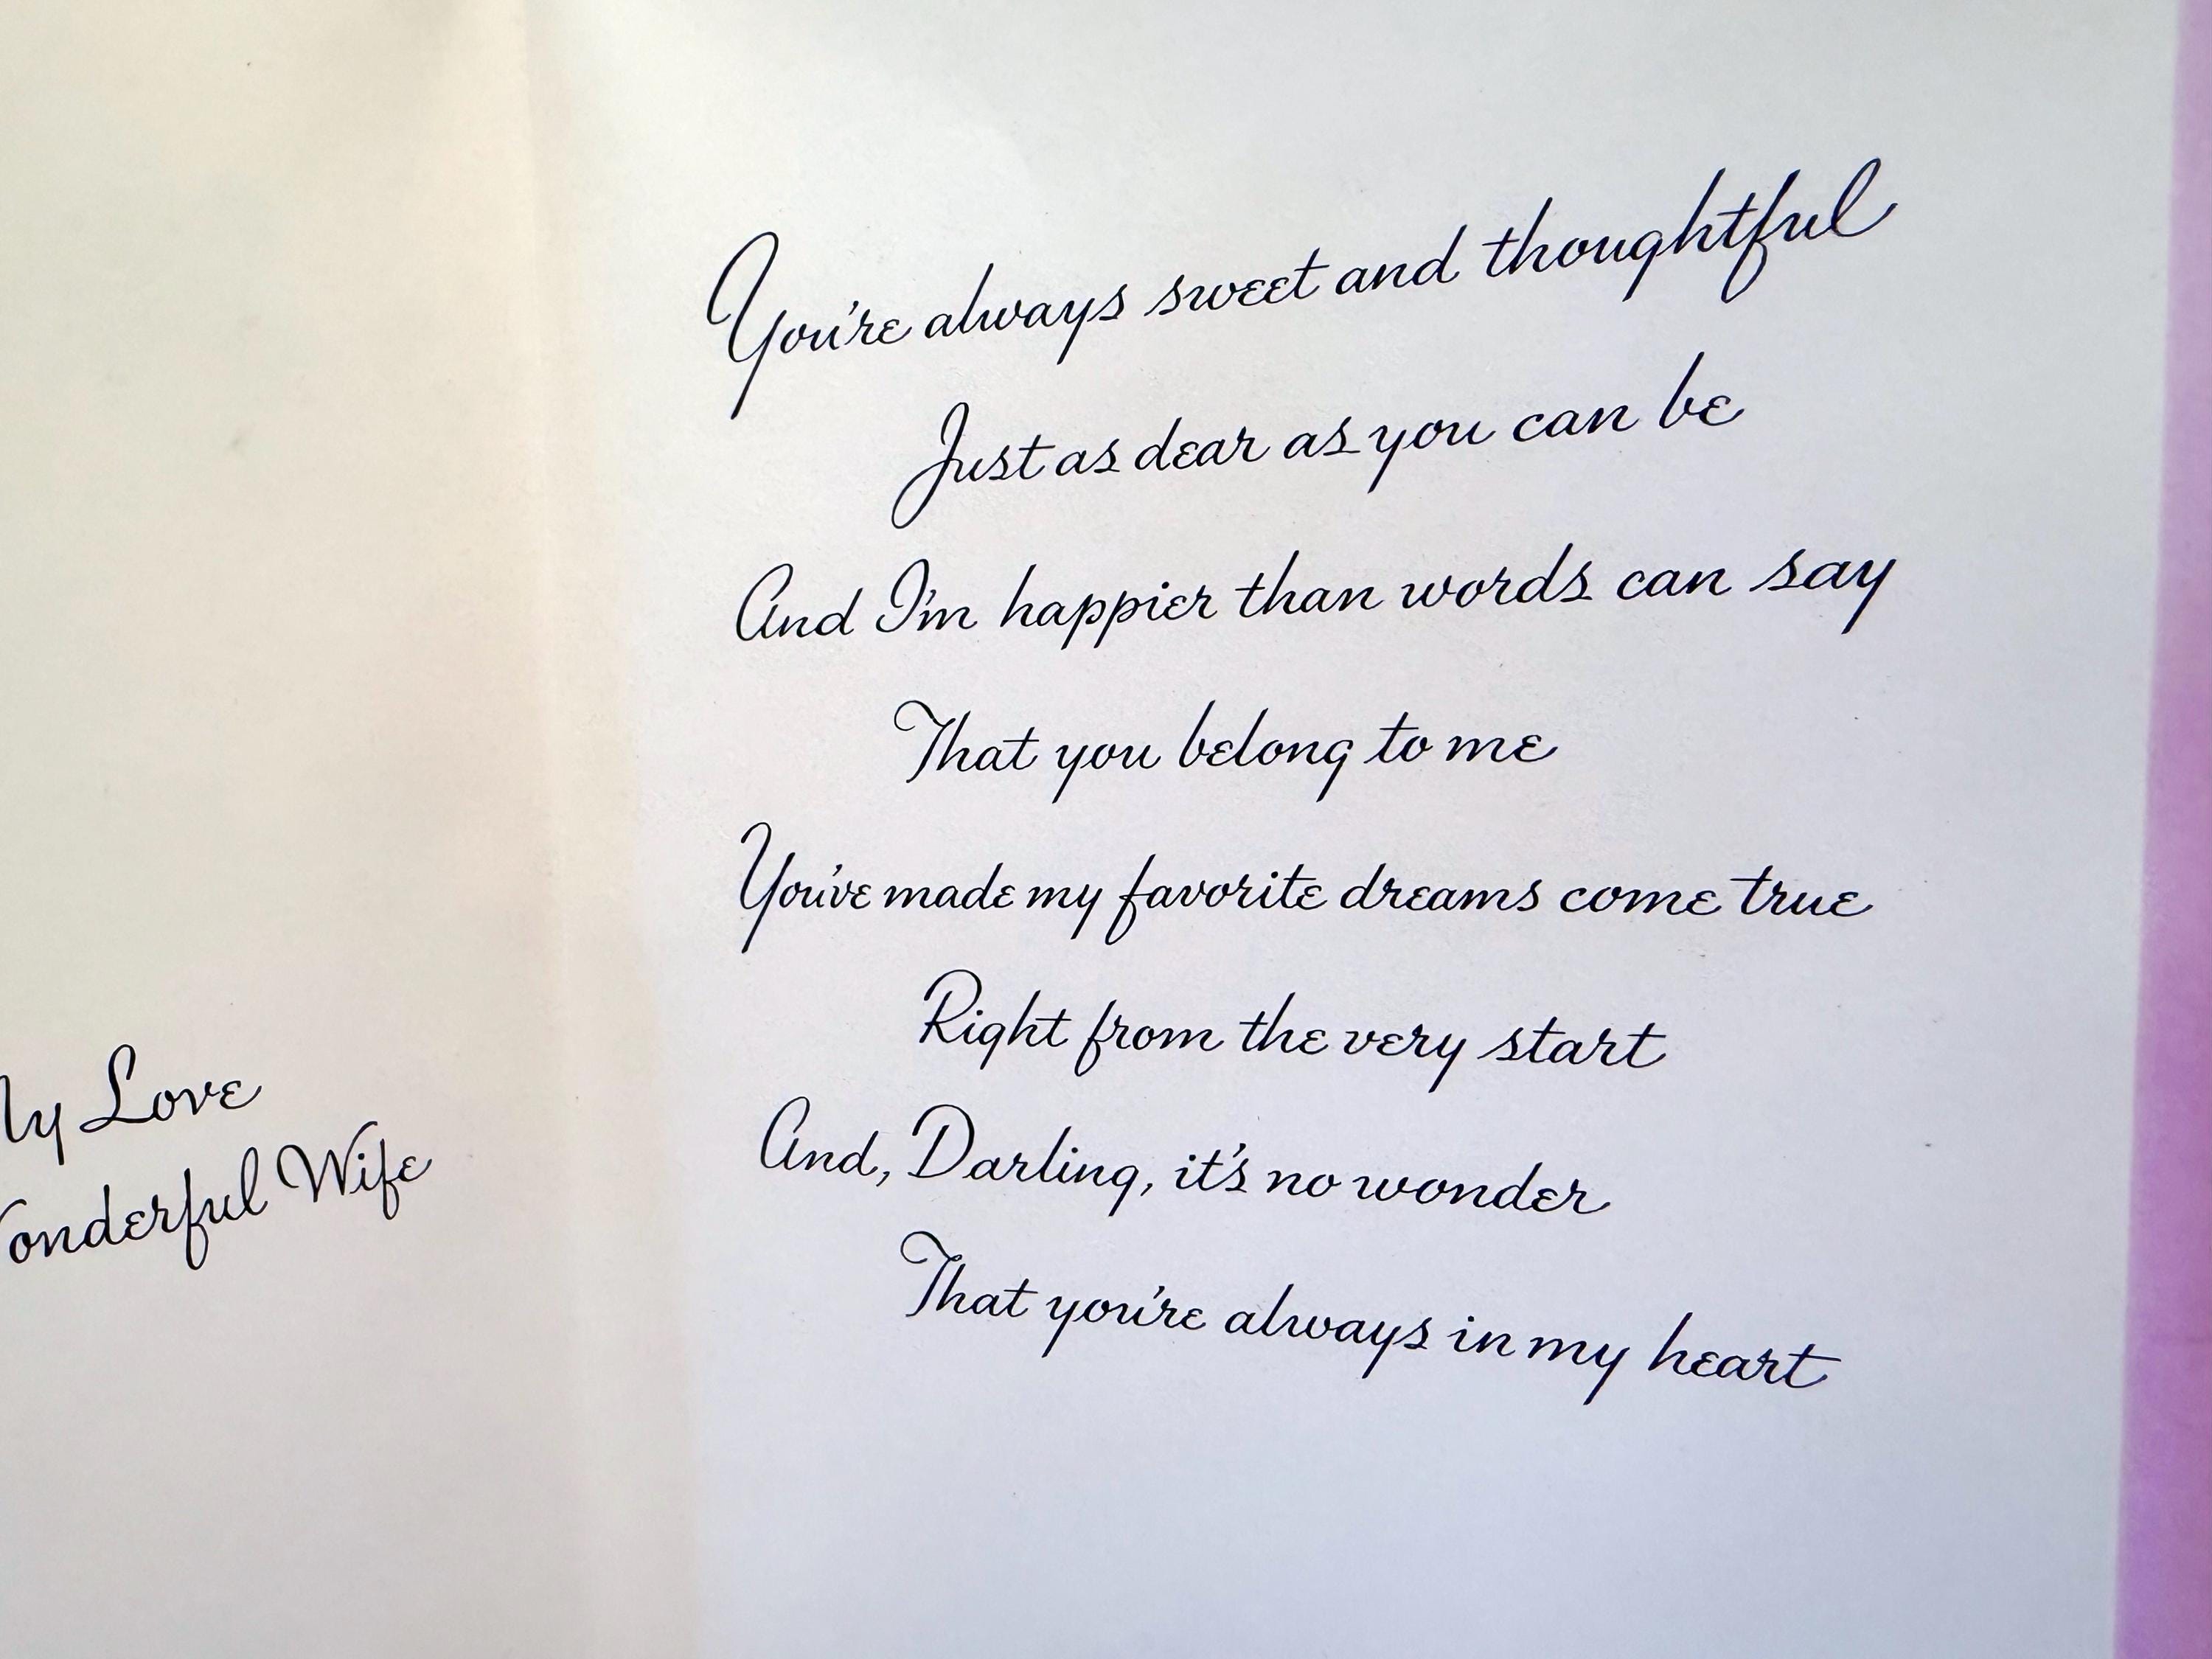 My Love
Wonderful Wife
You're always sweet and thoughtful
Just as dear as you can be
And I'm happier than words can say
That you belong to me
You've made my favorite dreams come true
Right from the very start
And, Darling, it's no wonder
That you're always in my heart